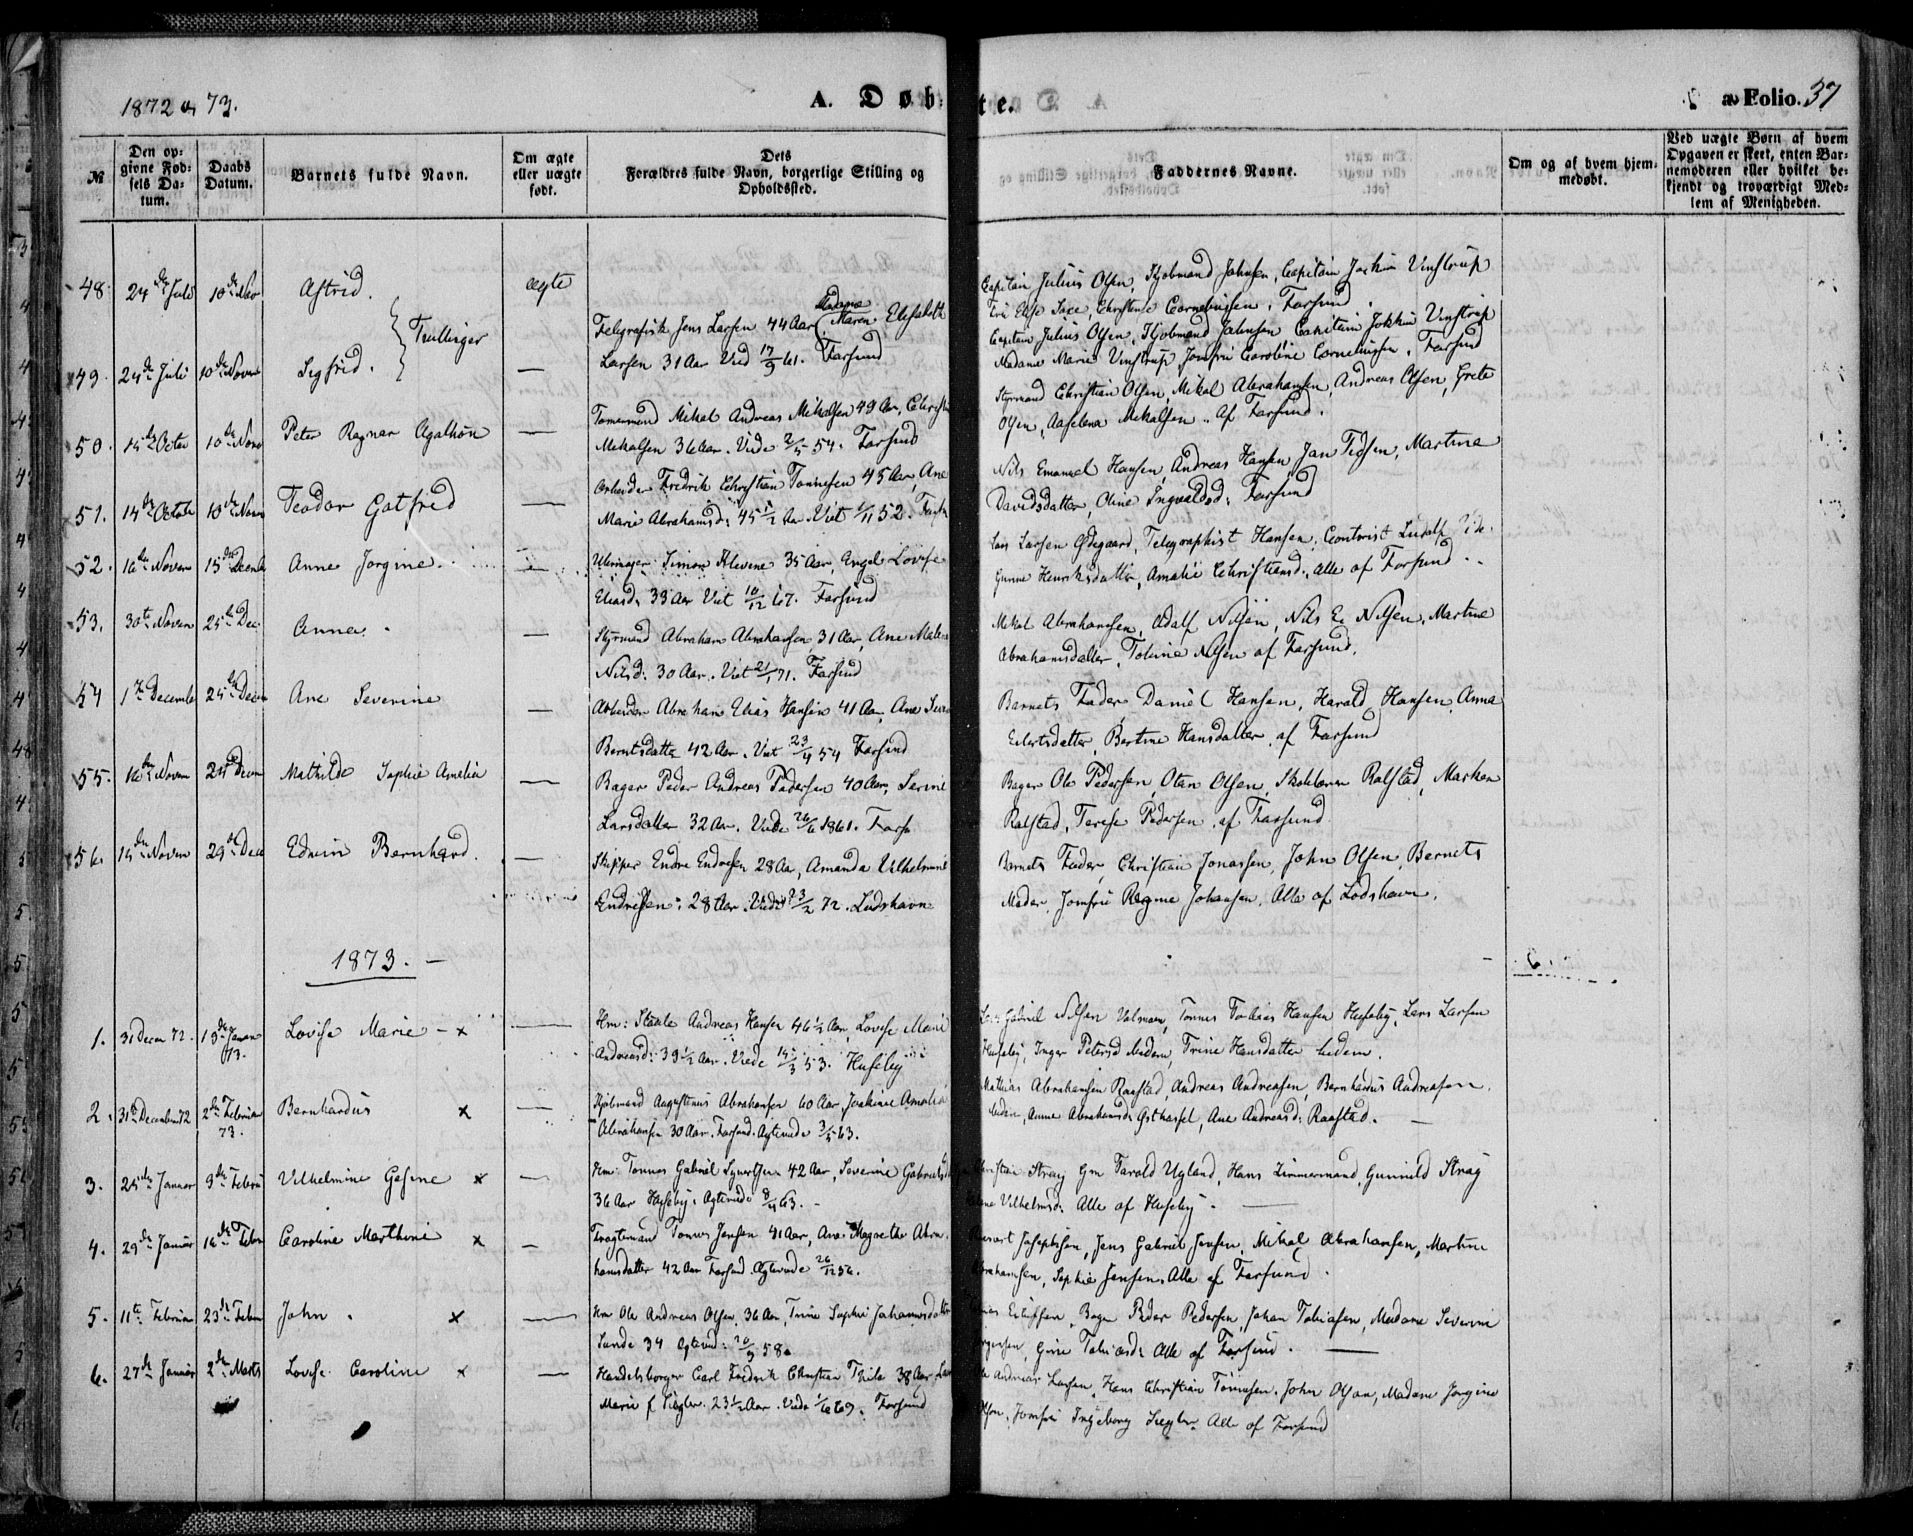 1872 og 73.
A. Døbte.
Folio. 37
№
Den opgivne Fødsels Datum.
Daabs Datum.
Barnets fulde Navn.
Om ægte eller uægte født.
Dets Forældres fulde Navn, borgerlige Stilling og Opholdssted.
Faddernes Navne.
Om og af hvem hjemmedøbt.
Ved uægte Børn af hvem Opgaven er skeet, enten Barnemoderen eller hvilket bekjendt og troværdigt Medlem af Menigheden.
48. 24de Juli 10de Nov Astrid. ægte
Tvillinger
Telegrafist Jens Larsen 44 Aar, Madame Maren Elisabeth
Larsen 31 Aar Vied 17/9 61. Farsund
Capitain Julius Olsen, Kjøbmand Johnsen, Capitain Jochim Vinstrup
Christense Corneliusen. Farsund.
49. 24de Juli 10de Novem Sigfrid. —
Capitain Julius Olsen, Kjøbmand Johnsen Capitain Jokkim Vinstrup
Madame Marie Vinstrup Jomfru Caroline Corneliussen. Farsund
50. 14de Octob 10de Nove Peter Ragnar Agathon —
Tømermend Mikal Andreas Mikalsen 49 Aar, Christi
Mekalsen 36 Aar. Viede 2/5 54. Farsund
Styrmand Christian Olsen, Mikal Abrahamsen, Andreas Olsen, Grete
Olsen, Mikalsen. af Farsund.
51. 14de Octob 10de Novem Teodor Gotfred —
Arbeider Fredrik Christian Tønnesen 45 Aar Ane
Marie Abrahamsd: 45 1/2 Aar. Viet 1/11 52. Farsu
Nils Emanuel Hansen, Andreas Hansen Jan Tidsen, Martine
Davidsdatter, Oline Ingvaldsd: Farsund
52. 16de Novem 15de Decemb Anne Jorgine. —
Uhrmager Simon Klevene 35 Aar, Angel Lovise
Eliasd: 33 Aar Viet 10/12 67. Farsund
Lars Larsen Ødegaard, Telegraphist Hansen, Ludolf
Gunne Henriksdatter, Amalie Christiansd: Alle af Farsund.
53. 30te Novem 25de Dec Anna. —
Styrmand Abraham Abrahamsen, 31 Aar, Ane Malene
Nilsd: 30 Aar. Viet 21/1 71. Farsund
Mekal Abrahamsen, Adolf Nilsen, Nils E. Nilsen, Martine
Abrahamsdatter, Tobine Nilsen af Farsund.
54 1ste Decembe 25de Decem Ane Severine —
Arbeider Abraham Elias Hansen 41 Aar, Ane
Berntsdatter 42 Aar. Viet 23/4 54 Farsund
Barnets Fader Daniel Hansen, Harald Hansen, Anna
Eilertsdatter, Bertine Hansdatter, af Farsund
55. 16de Novem 25de Decem Mathilde Sophie Amelia —
Bager Peder Andreas Pedersen 40 Aar, Serine
Larsdatter 32 Aar. Viede 26/6 1861. Fars
Bager Ole Pedersen, Otan Olsen, Skolelærer Ralstad, Marken
Ralstad, Terese Pedersen, af Farsund
56. 14de Novem 29de Dec Edwin Bernhard. —
Skipper Endre Endresen 28 Aar, Amanda Vilhelmine
Endresen: 28 Aar. Viede 23/2 72. Lodshavn
Barnets Fader, Christian Jonassen, John Olsen, Barnets
Moder, Jomfru Regine Johansen, Alle af Lodshavn.
1873. —
1. 31 Decem 72. 19de Januar 73. Lovise Marie – x —
Hm: Staale Andreas Hansen 46 1/2 Aar, Lovise Marie
Andreasd: 39 1/2 Aar. Viede 14/3 53. Huseby
Gabriel Nilsen Valmoen, Tønnes Tobias Hansen Huseby, Lars Larsen
Huseby, Inger Petersd ibidem, Trine Hansdatter ibidem.
2. 31te Decembr 72 2de Februar 73. Bernhardus x —
Kjøbmand Augustinus Abrahamsen 60 Aar, Joakine Amalia
Abrahamsen 30 Aar. Farsund. Ægteviede 3/5 63.
Mathias Abrahamsen Raastad, Andreas Andreasen, Bernhardus Andreasen
ibidem, Anne Abrahamsd: Østhassel, Ane Andreasd: Raastad. —
3. 25de Januar 9de Febru Vilhelmine Gesine x —
Hm: Tønnes Gabriel Sivertsen 42 Aar, Severine Gabrielsd
36 Aar Huseby. Ægteviede 8/4 63. –
Christian Straij Gm Tarald Ugland, Hans Zimmermand, Gunnild Straij
Vilhelmsd: Alle af Huseby. —
4. 29de Januar 16de Febr Caroline Marthine x —
Fragtemand Tønnes Jensen 41 Aar, Ane Magrethe Abra-
hamsdatter 42 Aar Farsund. Ægteviede 26/12 56.
Josephsen, Jens Gabriel Jensen, Mikal Abrahamsen, Martine
Abrahamsen, Sophie Jensen. Alle af Farsund.
5. 11te Februar 23de Febr John. x —
Hm Ole Andreas Olsen, 36 Aar, Trine Sophie Johannesdatter
Sunde 34 Ægtevied: 20/9 58.
Bager Peder Pedersen, Johan Tobiasen, Madame Severine
Tobiasd: Alle af Farsund. —
6. 27de Januar 2de Marts Lovise Caroline x —
Handelsborger Carl Fredrik Christian Thilo 38 Aar,
Marie f. Siegler. 23 1/2 Aar. Viede 1/6 69. Farsund
Andreas Larsen, Hans Christian Tønnesen, John Olson, Madame Jorgine
Olson, Jomfru Ingeborg Siegler. Alle af Farsund